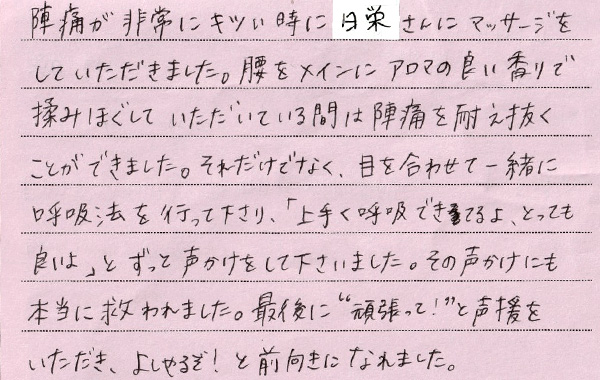 陣痛が非常にキツい時に日栄さんにマッサージを
していただきました。腰をメインにアロマの良い香りで
揉みほぐしていただいている間は陣痛を耐え抜く
ことができました。それだけでなく、目を合わせて一緒に
呼吸法を行って下さり、「上手く呼吸できてるよ、とっても
良いよ」とずっと声かけをして下さいました。その声かけにも
本当に救われました。最後に“頑張って!”と声援を
いただき、よしやるぞ!と前向きになれました。